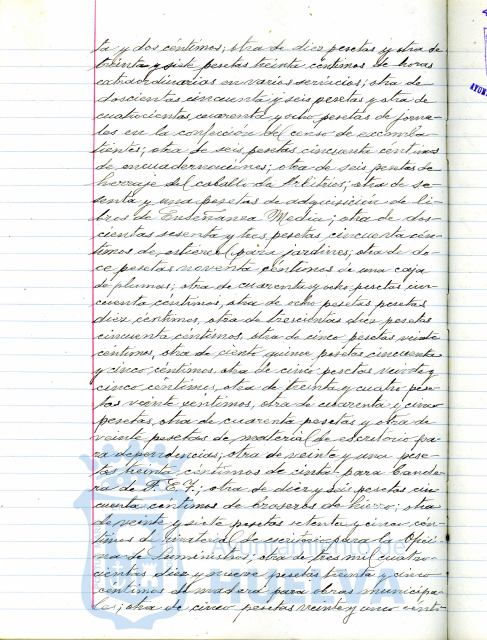 ta y dos céntimos; otra de diez pesetas y otra de
treinta y siete pesetas treinta céntimos de horas
extraordinarias en varios servicios; otra de
doscientas cincuenta y seis pesetas y otra de
cuatrocientas cuarenta y ocho pesetas de jorna-
les en la confección del censo de excomba-
tientes; otra de seis pesetas cincuenta céntimos
de encuadernaciones; otra de seis pesetas de
herraje del caballo de Arbitrios; otra de se-
senta y una pesetas de adquisición de li-
bros de Enseñanza Media; otra de dos-
cientas sesenta y tres pesetas, cincuenta cén-
timos de estiercol para jardines; otra de do-
ce pesetas noventa céntimos de una caja
de plumas; otra de cuarenta y ocho pesetas cin-
cuenta céntimos, otra de ocho pesetas pesetas
diez céntimos, otra de trescientas diez pesetas
cincuenta céntimos, otra de cinco pesetas veinte
céntimos, otra de ciento quince pesetas cincuenta
y cinco céntimos otra de cinco pesetas veinte y
cinco céntimos, otra de treinta y cuatro pese-
tas veinte céntimos, otra de cuarenta y cinco
pesetas, otra de cuarenta pesetas y otra de
veinte pesetas de material de escritorio pa-
ra dependencias; otra de veinte y una pese-
tas treinta céntimos de cinta para bande-
ra de F.E.T.; otra de diez y seis pesetas cin-
cuenta céntimos de braseros de hierro; otra
de veinte y siete pesetas setenta y cinco cén-
timos de material de escritorio para la Ofici-
na de Suministros; otra de tres mil cuatro-
cientas diez y nueve pesetas treinta y cinco
céntimos de madera para obras municipa-
les; otra de cinco pesetas veinte y cinco cénti-
Ayuntamiento de
HUELVA